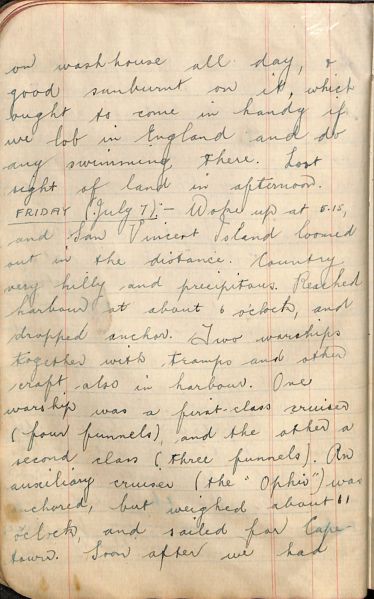 on wash house all day, &
good sunburnt on it, which
ought to come in handy if
we lob in England and do
any swimming there. Lost
sight of land in afternoon.
FRIDAY (July 7) :- Woke up at 5.15,
and San Vincent Island loomed
out in the distance. Country
very hilly and precipitous. Reached
harbour at about 6 oclock, and
dropped anchor. Two warships
together with tramps and other
craft also in harbour. One
warship was a first-class cruiser
(four funnels), and the other a
second class (three funnels). An
auxiliary cruiser (the "Ophir") was
anchored, but weighed about 11
o'clock, and sailed for Cape-
town. Soon after we had